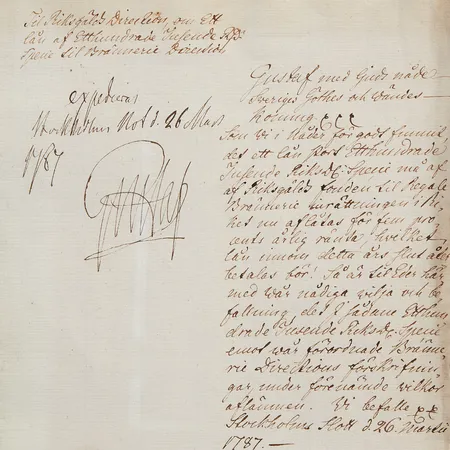 Til Riksgälds Direktion, om Ett
lån af Etthundrade Tusende Rd
Specie til Brännerie Direction
Expedieras
Stockholms Slot d. 26 Mars
1787
Gustaf
Gustaf med Guds nåde
Sveriges Göthes och Wändes
Konung &c&c&c
Som Vi i Nåder för godt funnit
det ett lån stort Etthundrade
Tusende Riksd. Specie må af
af Riksgälds fonden til Regale
Brännerie inrättningen i Ri-
ket nu aflåtas för fem pro
cents årlig ränta, hvilket
lån innom detta års slut åter
betalas bör; Så är til Eder här
med vår nådiga vilja och be-
fallning, det I sådane Etthun-
drade Tusende Riksd. Specie
emot vår förordnade Bränne-
rie Directions förskrifnin-
gar under förenämde vilkor
aflämnen. Vi befalle &c
Stockholms Slott d. 26. Martii
1787.—